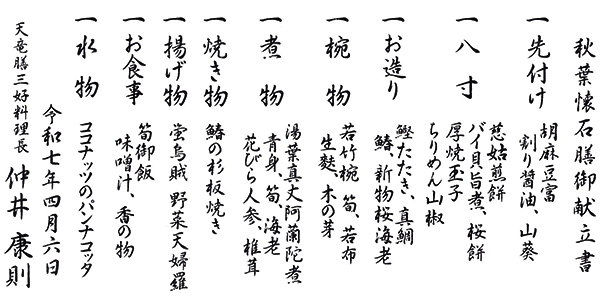 秋葉懐石膳御献立書
一先付け
胡麻豆富
割り醤油、山葵
一八寸
慈姑煎餅
バイ貝旨煮、桜餅
厚焼玉子
ちりめん山椒
一お造り
鰹たたき、真鯛
鱠、新物桜海老
一椀物
若竹椀 筍、若布
生麩、木の芽
一煮物
湯葉真丈阿蘭陀煮
青身、筍、海老
花びら人参、椎茸
一焼き物
鰆の杉板焼き
一揚げ物
蛍烏賊 野菜天婦羅
一お食事
筍御飯
味噌汁、香の物
一水物
ココナッツのパンナコッタ
令和七年四月六日
天竜膳三好料理長 仲井康則